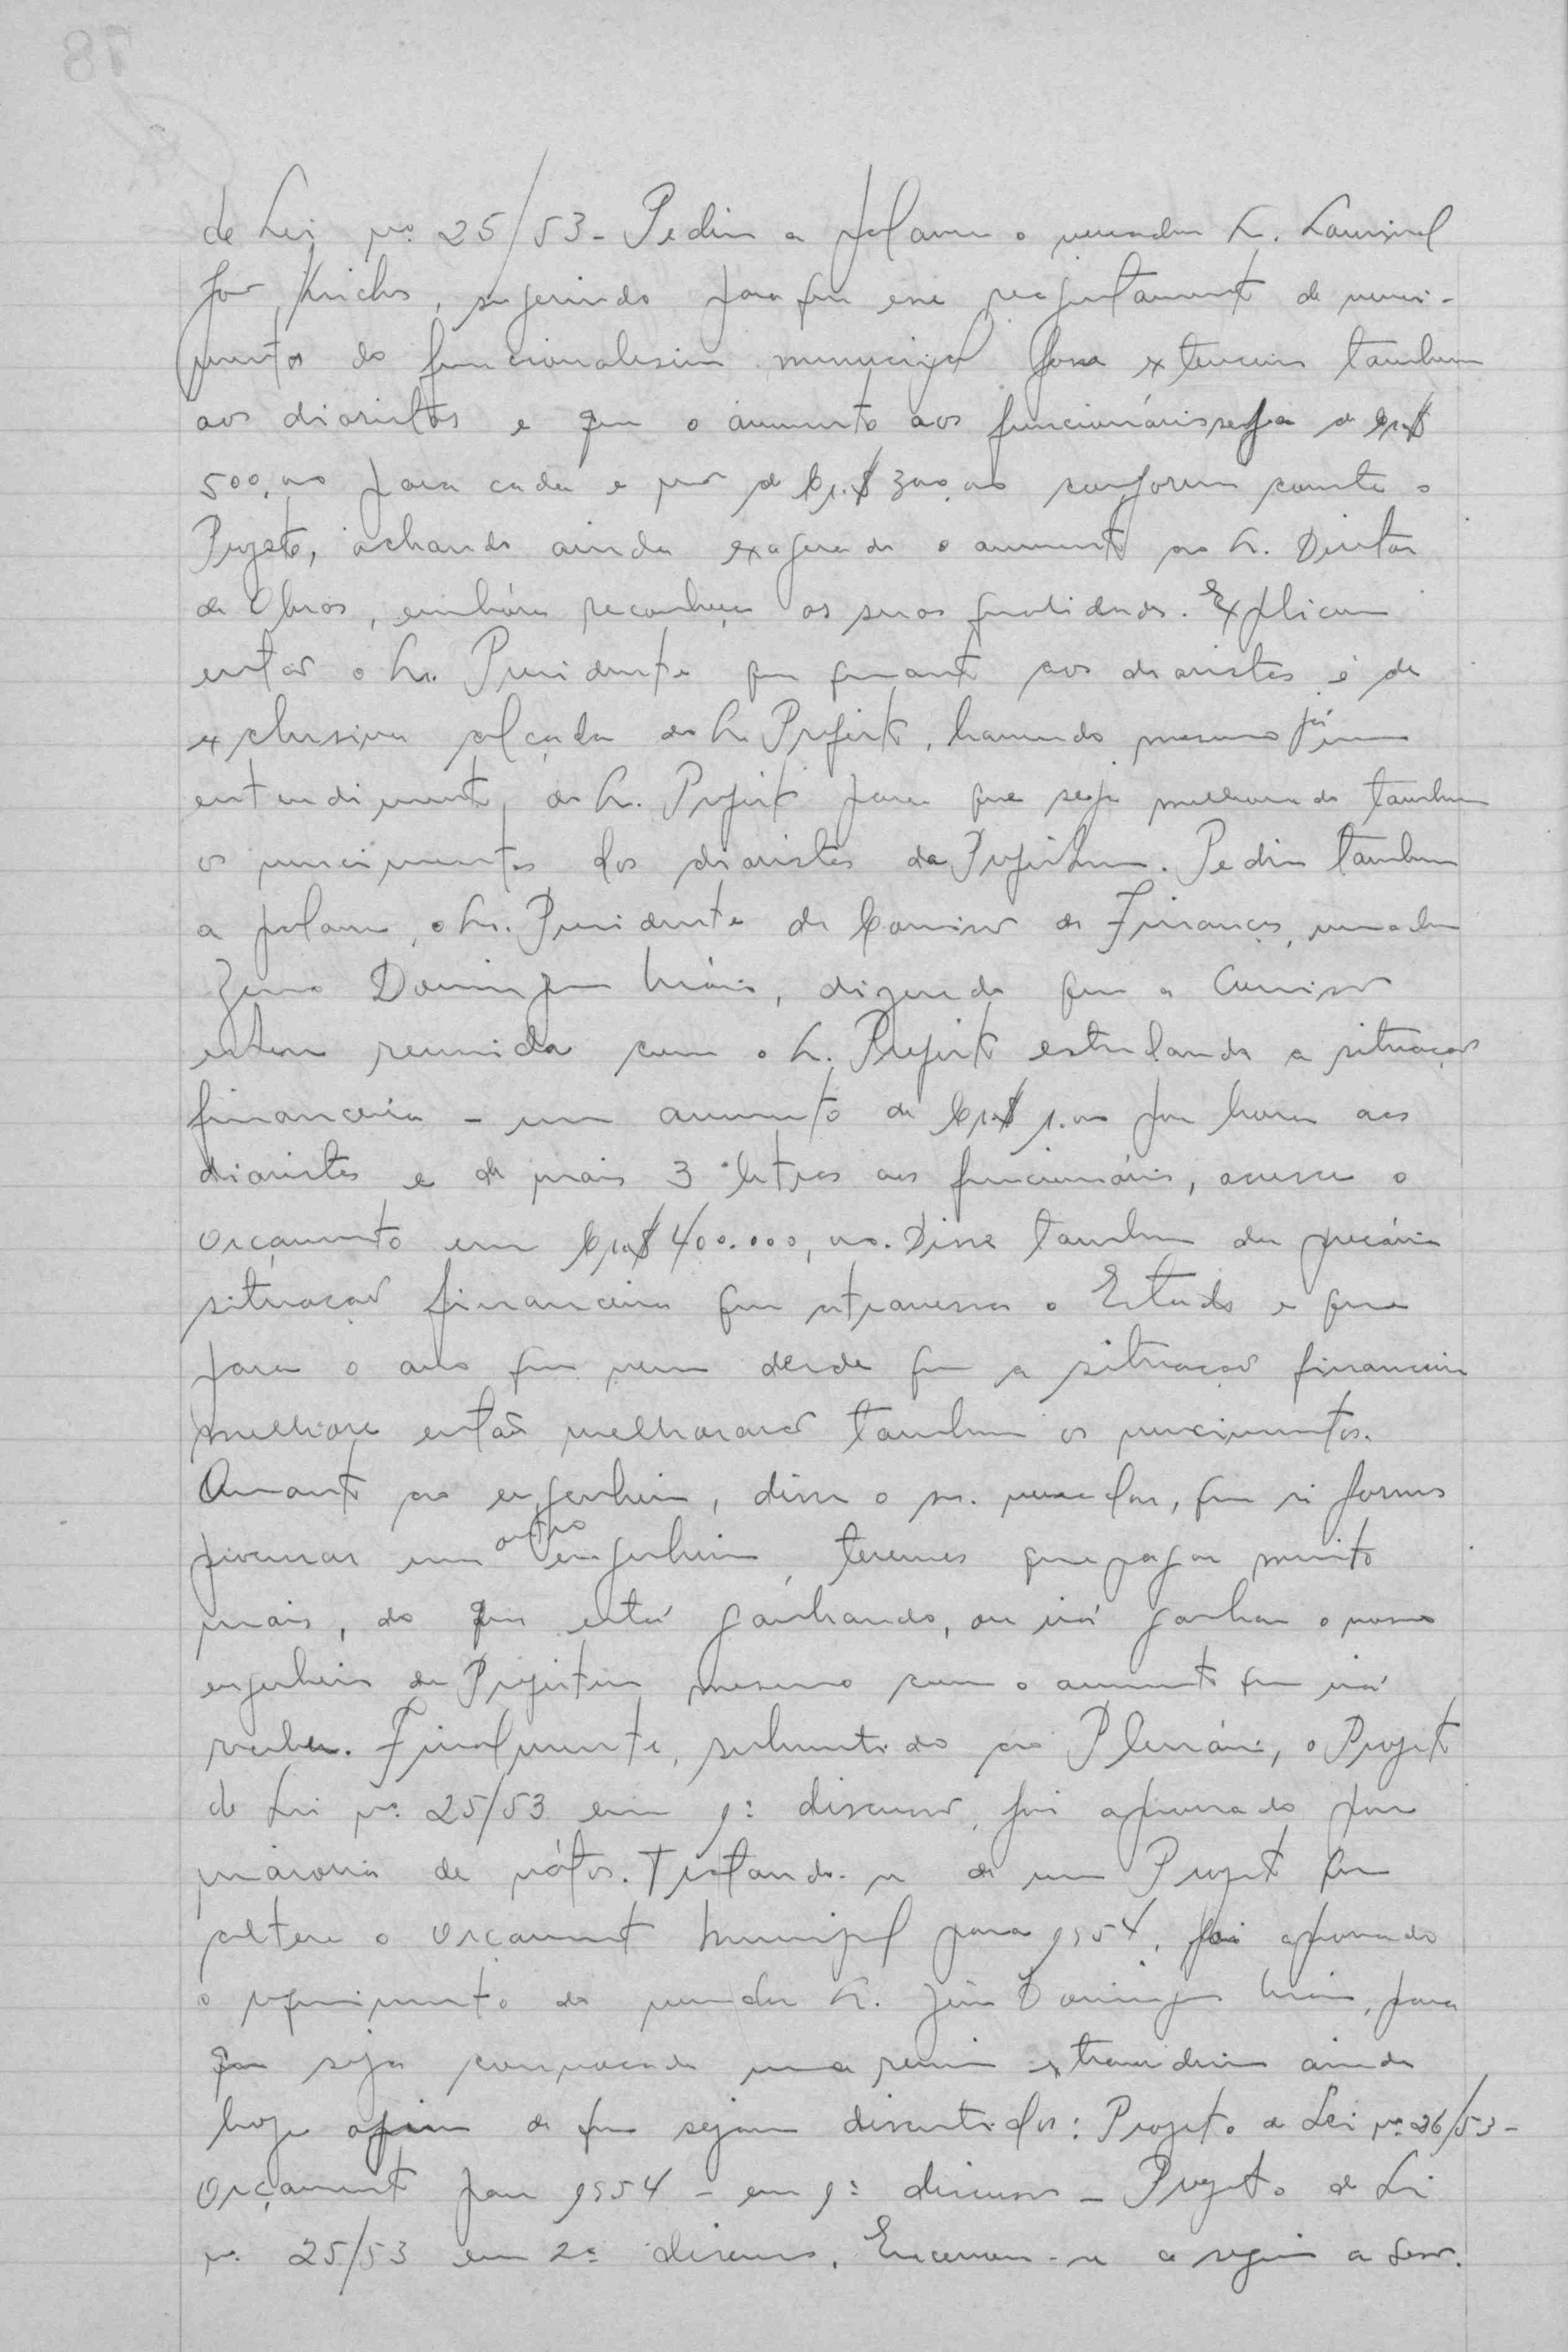 de Lei nº 25/53 - Pediu a palavra o vereador Sr. Lourival
José, sugerindo para que esse reajustamento de venci-
mentos do funcionalismo municipal fosse extensivo tambem
aos diaristas e que o aumento aos funcionários seja de Cr.$
500,00 para cada e não de Cr.$ 300,00 conforme consta o
Projeto, achando ainda exagerado o aumento ao Sr. Diretor
de Obras, embóra reconheça as suas qualidades. Explicou
então o Sr. Presidente que quanto aos diaristas é da
exclusiva alçada do Sr. Prefeito, havendo mesmo já um
entendimento do Sr. Prefeito para que seja melhorado tambem
os vencimentos dos diaristas da Prefeitura. Pediu tambem
a palavra, o Sr. Presidente da Comissão de Finanças, vereador
Domingues, dizendo que a Comissão
esteve reunida com o Sr. Prefeito estudando a situação
financeira - um aumento de Cr.$ 1,00 por hora aos
diaristas e de mais 3 letras aos funcionários, acresce o
Orçamento em Cr.$ 400.000,00. Disse tambem da precária
situação financeira que atravessa o Estado e que
para o ano que vem desde que a situação financeira
melhore então melhorará tambem os vencimentos.
Quanto ao engenheiro, disse o sr. vereador, que si formos
procurar um outro engenheiro, teremos que pagar muito
mais, do que está ganhando, ou irá ganhar o nosso
engenheiro da Prefeitura mesmo com o aumento que irá
receber. Finalmente, submetido ao Plenário, o Projeto
de Lei nº 25/53 em 1ª discussão, foi aprovado por
maioria de vótos. Tratando-se de um Projeto que
altera o Orçamento Municipal para 1954, foi aprovado
o requerimento do vereador Sr. Domingues, para
que seja convocada uma reunião extraordinária ainda
hoje afim de que sejam discutidos: Projeto de Lei nº 26/53 -
Orçamento para 1954 - em 1ª discussão - Projeto de Lei
nº 25/53 em 2ª discussão. Encerrou-se a seguir a sessão.